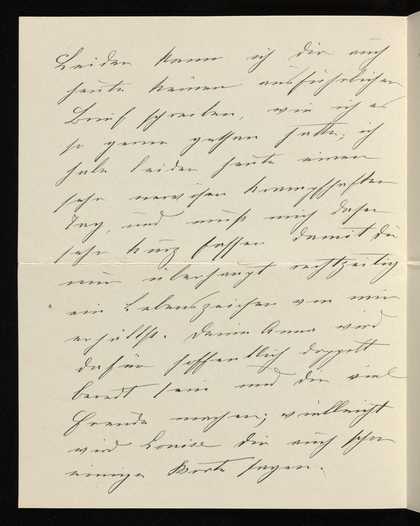 Leider kann ich dir auch
heute keinen ausführlichen
Brief schreiben, wie ich es
so gerne gethan hätte; ich
habe leider heute einen
sehr nervösen krampfhaften
Tag, und muß mich daher
sehr kurz fassen damit du
nur überhaupt rechtzeitig
ein Lebenszeichen von mir
erhältst. Deine Anna wird
dafür hoffentlich doppelt
beredt sein und dir viel
Freude machen; vielleicht
wird Louise dir auch schon
einige Worte sagen.